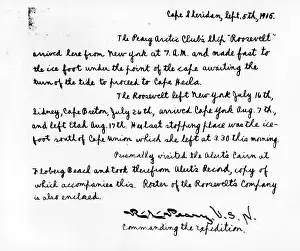 Cape Sheridan, Sept. 5th, 1905.
The Peary Arctic Club's ship "Roosevelt"
arrived here from New York at 7 A.M. and made fast to
the ice foot under the point of the cape awaiting the
turn of the tide to proceed to Cape Hecla.
The Roosevelt left New York July 16th,
Sidney, Cape Breton, July 26th, arrived Cape York Aug. 7th,
and left Etah Aug. 17th. Her last stopping place was the ice-
foot south of Cape Union which she left at 3.30 this morning.
Personally visited the Alert's Cairn at
Floberg Beach and took therefrom Alert's Record, copy of
which accompanies this. Roster of the Roosevelt's Company
is also enclosed.
R. E. Peary, U.S.N.
Commanding the expedition.